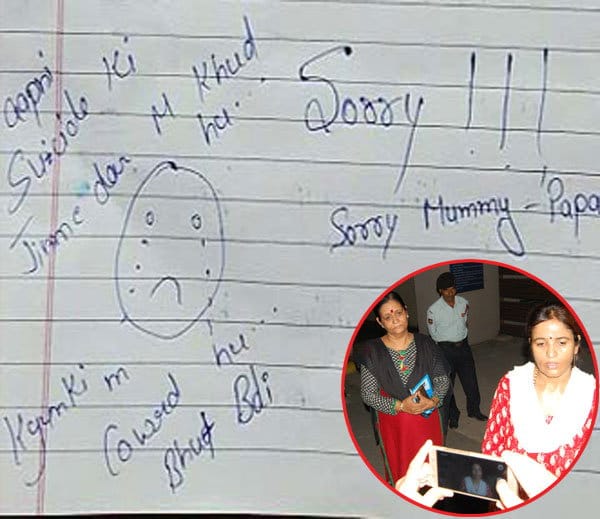 aapni
Suicide Ki
Jimmedar M Khud
hu...
Sorry !!!
Sorry Mummy-Papa
Kyunki m
Coward hu...
Bhut Bdi